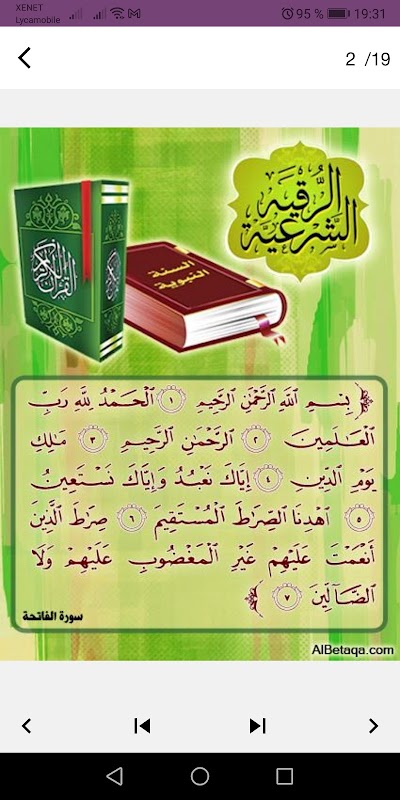 XENET
Lycamobile
95 %
19:31
2 /19
الرُّقية
الشّرعيّة
القرآن الكريم
السنة
النبوية
بِسۡمِ ٱللَّهِ ٱلرَّحۡمَٰنِ ٱلرَّحِيمِ ١ ٱلۡحَمۡدُ لِلَّهِ رَبِّ
ٱلۡعَٰلَمِينَ ٢ ٱلرَّحۡمَٰنِ ٱلرَّحِيمِ ٣ مَٰلِكِ
يَوۡمِ ٱلدِّينِ ٤ إِيَّاكَ نَعۡبُدُ وَإِيَّاكَ نَسۡتَعِينُ
٥ ٱهۡدِنَا ٱلصِّرَٰطَ ٱلۡمُسۡتَقِيمَ ٦ صِرَٰطَ ٱلَّذِينَ
أَنۡعَمۡتَ عَلَيۡهِمۡ غَيۡرِ ٱلۡمَغۡضُوبِ عَلَيۡهِمۡ وَلَا
ٱلضَّآلِّينَ ٧
سورة الفاتحة
AlBetaqa.com